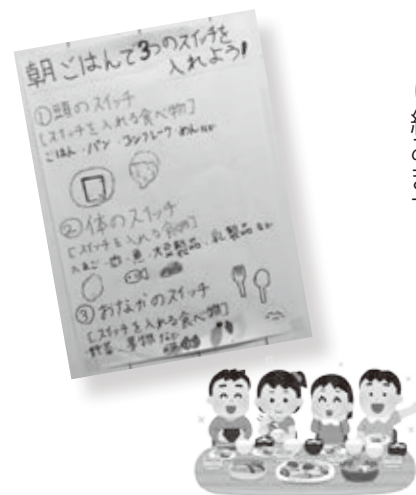 朝ごはんで3つのスイッチを
入れよう!
①頭のスイッチ
[スイッチを入れる食べ物]
ごはん・パン・コンフレーク・めんなど
②体のスイッチ
[スイッチを入れる食べ物]
たまご・肉・魚・大豆製品・乳製品など
③おなかのスイッチ
[スイッチを入れる食べ物]
野菜・果物など